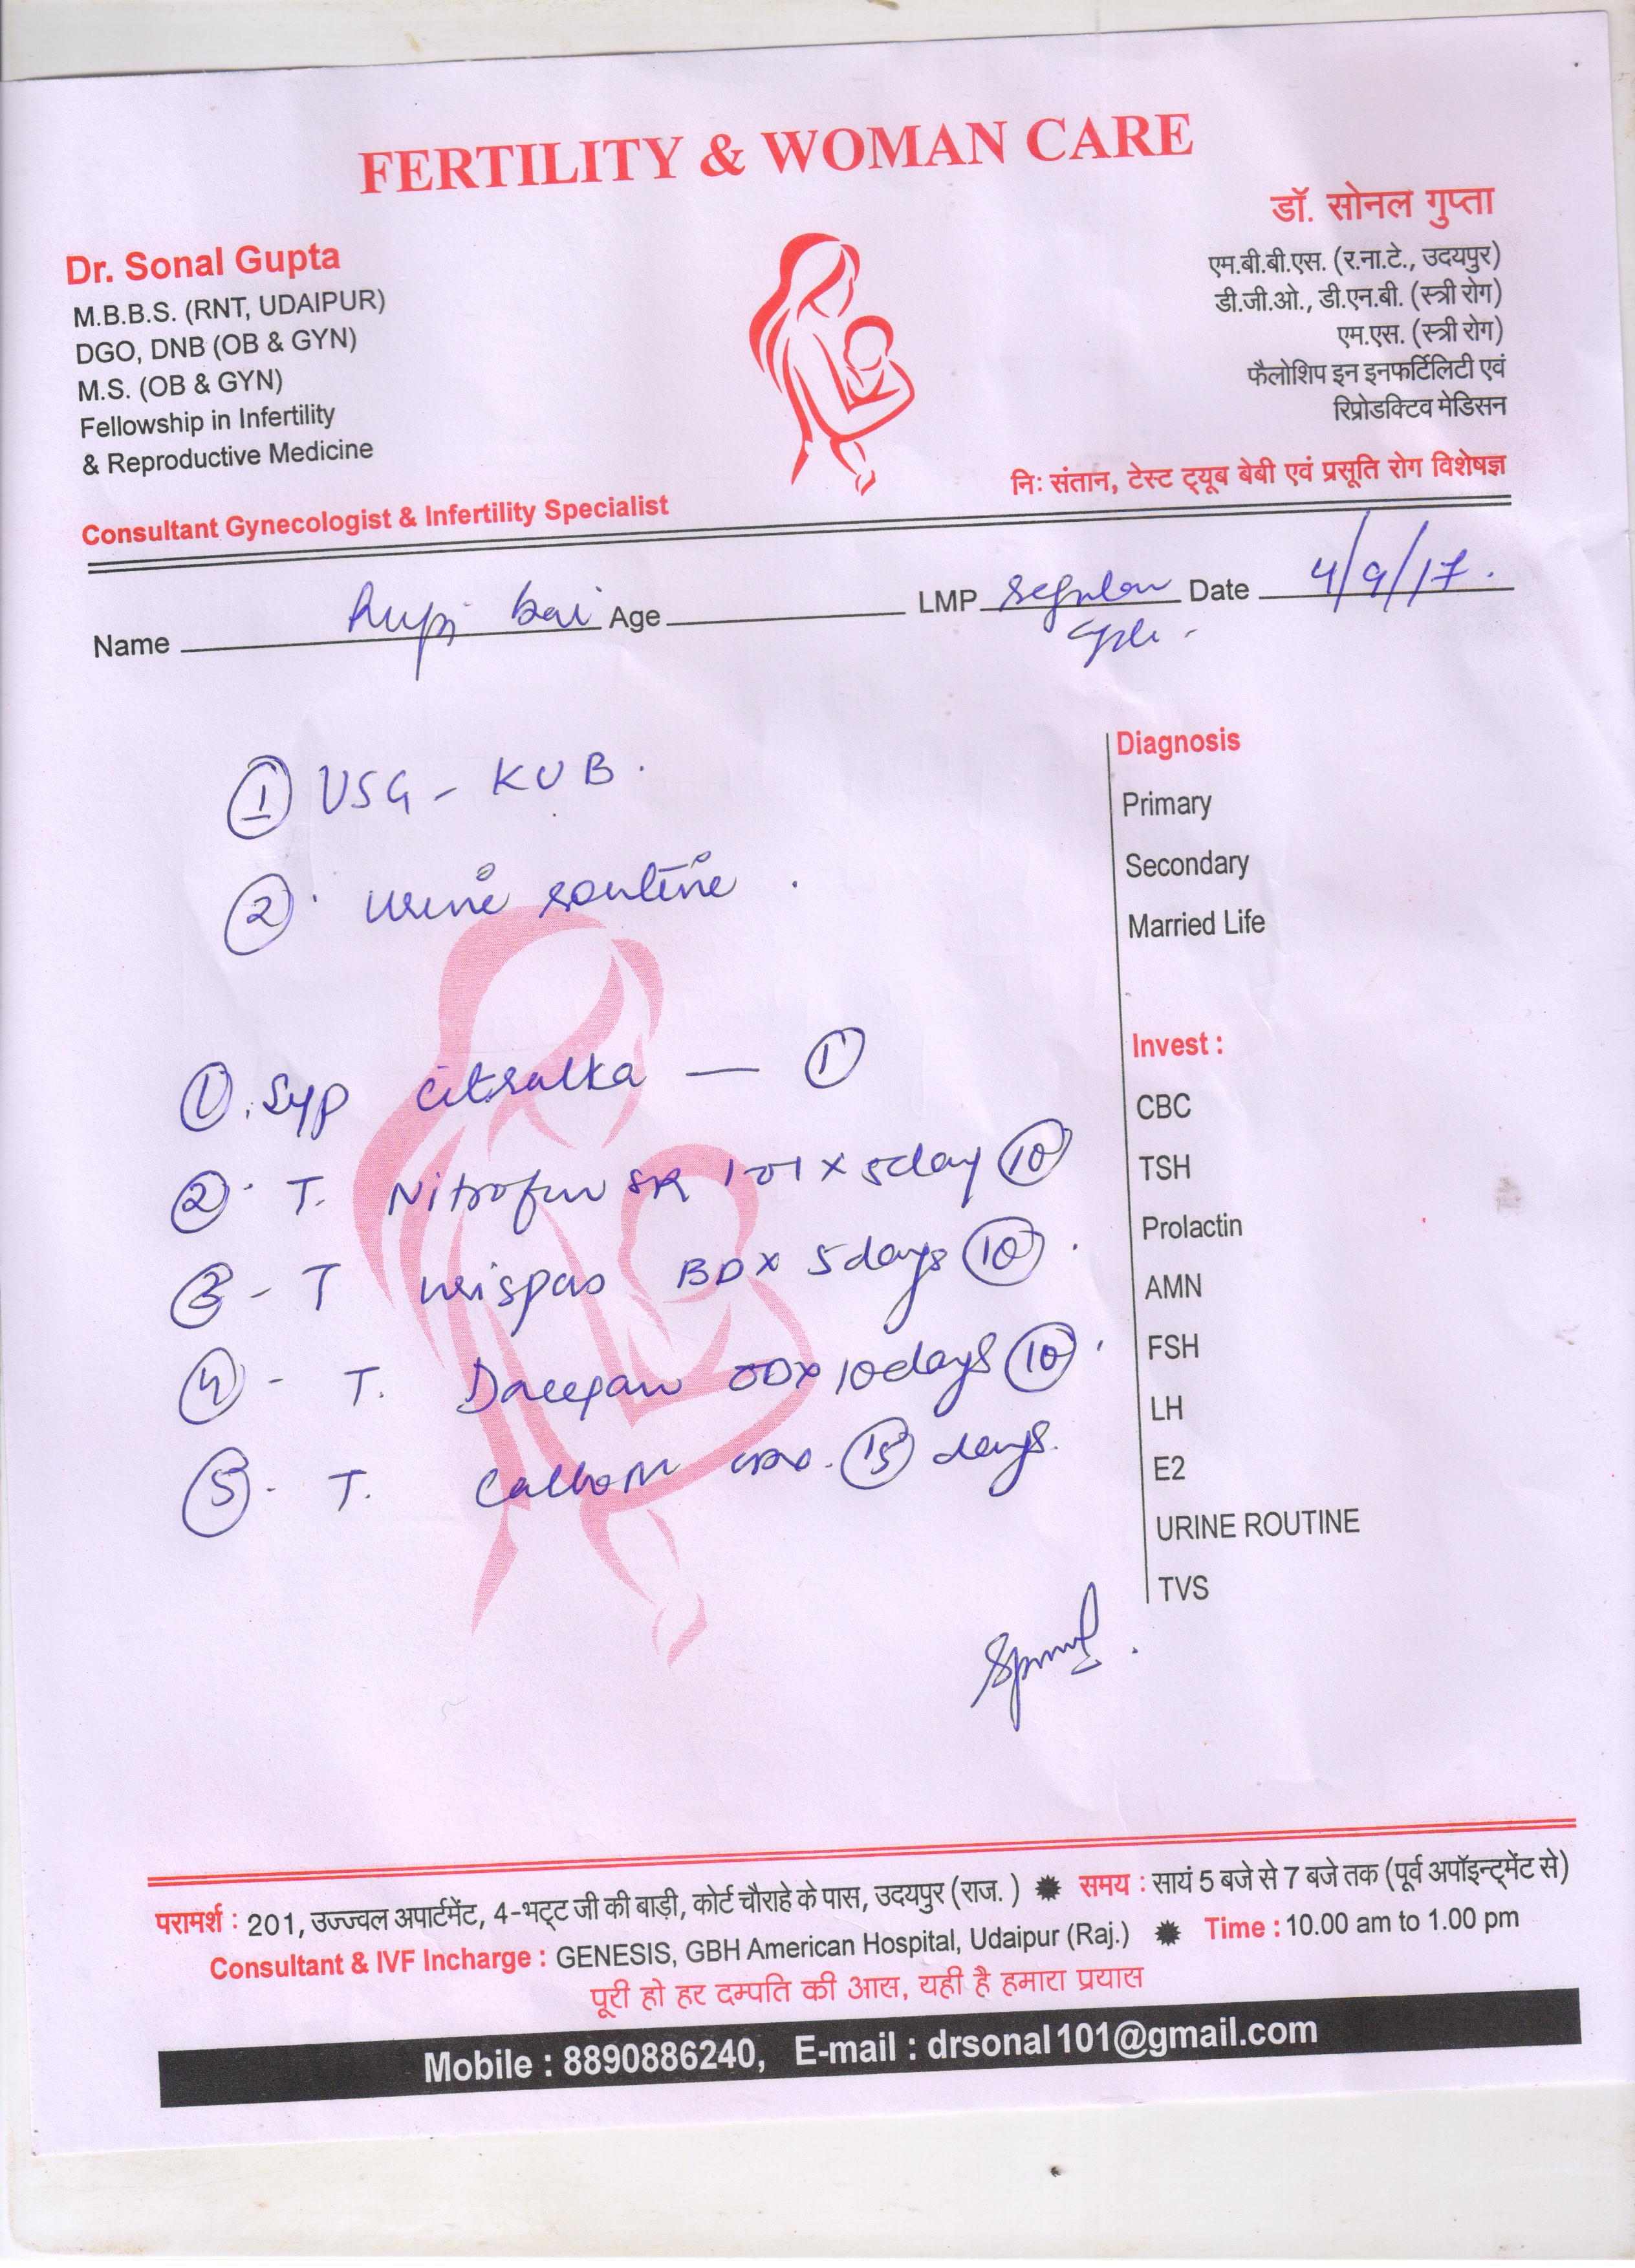 FERTILITY & WOMAN CARE
Dr. Sonal Gupta
M.B.B.S. (RNT, UDAIPUR)
DGO, DNB (OB & GYN)
M.S. (OB & GYN)
Fellowship in Infertility
& Reproductive Medicine
Consultant Gynecologist & Infertility Specialist
डॉ. सोनल गुप्ता
एम.बी.बी.एस. (र.ना.टे., उदयपुर)
डी.जी.ओ., डी.एन.बी. (स्त्री रोग)
एम.एस. (स्त्री रोग)
फैलोशिप इन इनफर्टिलिटी एवं
रिप्रोडक्टिव मेडिसन
नि: संतान, टेस्ट ट्यूब बेबी एवं प्रसूति रोग विशेषज्ञ
Name Rupi bai Age LMP regular Date 4/9/17.
① USG - KUB.
② urine routine.
① Syp citralka — ①
② T. Nitrofur SR 1-0-1 x 5day ⑩
③ - T urispas BD x 5days ⑩.
④ - T. OD x 10days ⑩.
⑤ - T. ⑮ days.
Diagnosis
Primary
Secondary
Married Life
Invest :
CBC
TSH
Prolactin
AMN
FSH
LH
E2
URINE ROUTINE
TVS
परामर्श : 201, उज्ज्वल अपार्टमेंट, 4-भट्ट जी की बाड़ी, कोर्ट चौराहे के पास, उदयपुर (राज. ) समय : सायं 5 बजे से 7 बजे तक (पूर्व अपॉइन्ट्मेंट से)
Consultant & IVF Incharge : GENESIS, GBH American Hospital, Udaipur (Raj.) Time : 10.00 am to 1.00 pm
पूरी हो हर दम्पति की आस, यही है हमारा प्रयास
Mobile : 8890886240, E-mail : drsonal101@gmail.com